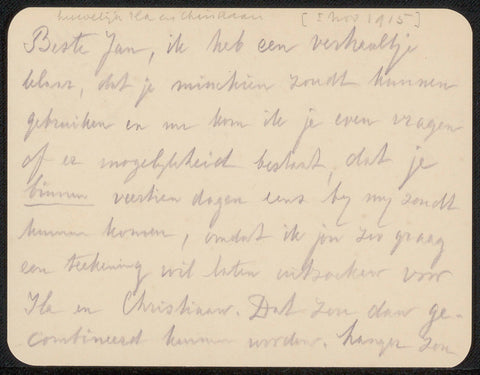 huwelijk Ila en Christiaan [5 nov 1915]
Beste Jan, ik heb een verhaaltje
klaar, dat je misschien zoudt kunnen
gebruiken en nu kom ik je even vragen
of er mogelijkheid bestaat, dat je
binnen veertien dagen eens by my zoudt
kunnen komen, omdat ik jou zoo graag
een teekening wil laten uitzoeken voor
Ila en Christiaan. Dat zou dan ge-
combineerd kunnen worden. Langer zou